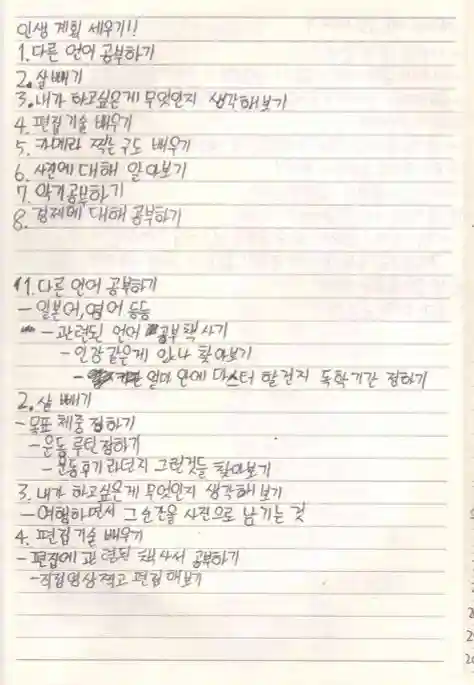 인생 계획 세우기!!
1. 다른 언어 공부하기
2. 살빼기
3. 내가 하고싶은게 무엇인지 생각해보기
4. 편집기술 배우기
5. 카메라 찍는구도 배우기
6. 사진에 대해 알아보기
7. 악기공부하기
8. 경제에 대해 공부하기
1. 다른 언어 공부하기
- 일본어, 영어 등등
- 관련된 언어 공부책사기
- 인강같은게 있나 찾아보기
- 얼마 안에 마스터 할건지 독학기간 정하기
2. 살 빼기
- 목표 체중정하기
- 운동 루틴정하기
- 운동후기라던지 그런것들 찾아보기
3. 내가 하고싶은게 무엇인지 생각해보기
- 여행하면서 그순간을 사진으로 남기는 것
4. 편집기술 배우기
- 편집에 관련된 책사서 공부하기
- 직접영상찍고 편집해보기